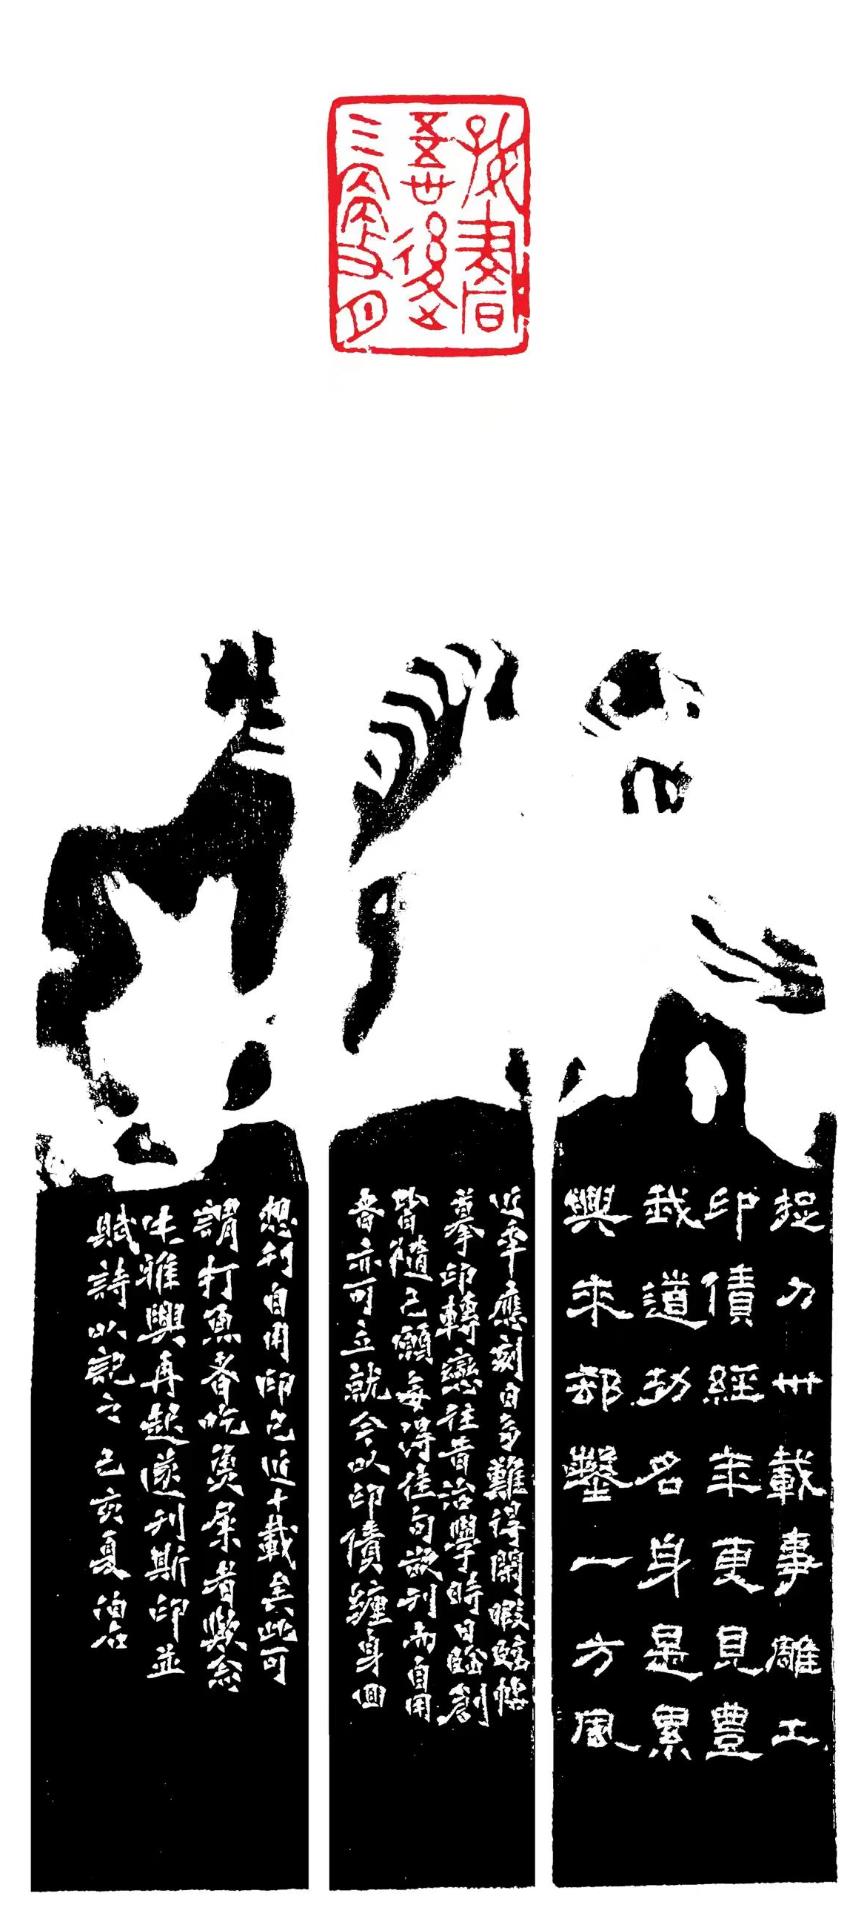 捉刀卅載事雕工
印債經年更見豐
我道功名身是累
興來郤鑿一方風
近年應刻日多難得閑暇臨帖
摹印轉戀往昔治學時日臨創
皆隨己願每得佳句欲刊而自用
者亦可立就今以印債纏身回
想刊自用印已近十載矣此可
謂打魚者吃者歟
雅興再起遂刊斯印並
賦詩以記之己亥夏伯石